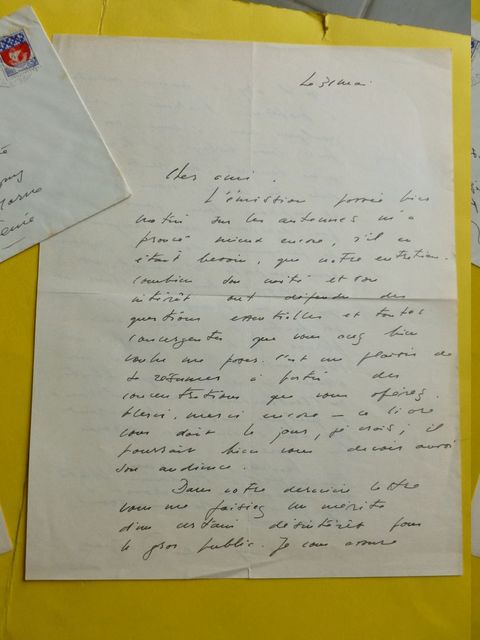 Le 31 mai
Cher ami.
L'émission parue hier
matin sur les antennes m'a
prouvé mieux encore, s'il en
était besoin, que votre entretien.
combien son unité et son
intérêt ont dépendu des
questions essentielles et toutes
convergentes que vous avez bien
voulu me poser. c'est un plaisir de
à partir des
concentrations que vous opérez.
Merci, merci encore — ce livre
vous doit le jour, je crois ; il
pourrait bien vous devoir aussi
son audience.
Dans votre dernière lettre
vous me faisiez un mérite
d'un certain désintérêt pour
le gros public. Je vous assure
Marne